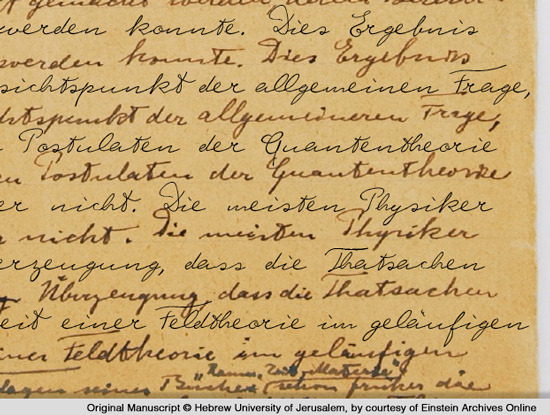 gemacht
werden konnte. Dies Ergebnis
werden konnte. Dies Ergebnis
sichtspunkt der allgemeinen Frage,
chtspunkt der allgemeineren Frage,
Postulaten der Quantentheorie
en Postulaten der Quantentheorie
er nicht. Die meisten Physiker
r nicht. Die meisten Physiker
erzeugung, dass die Thatsachen
Überzeugung, dass die Thatsachen
eit einer Feldtheorie im geläufigen
einer Feldtheorie im geläufigen
„Raum, Zeit, Materie"
seines Buches schon früher die
Original Manuscript © Hebrew University of Jerusalem, by courtesy of Einstein Archives Online